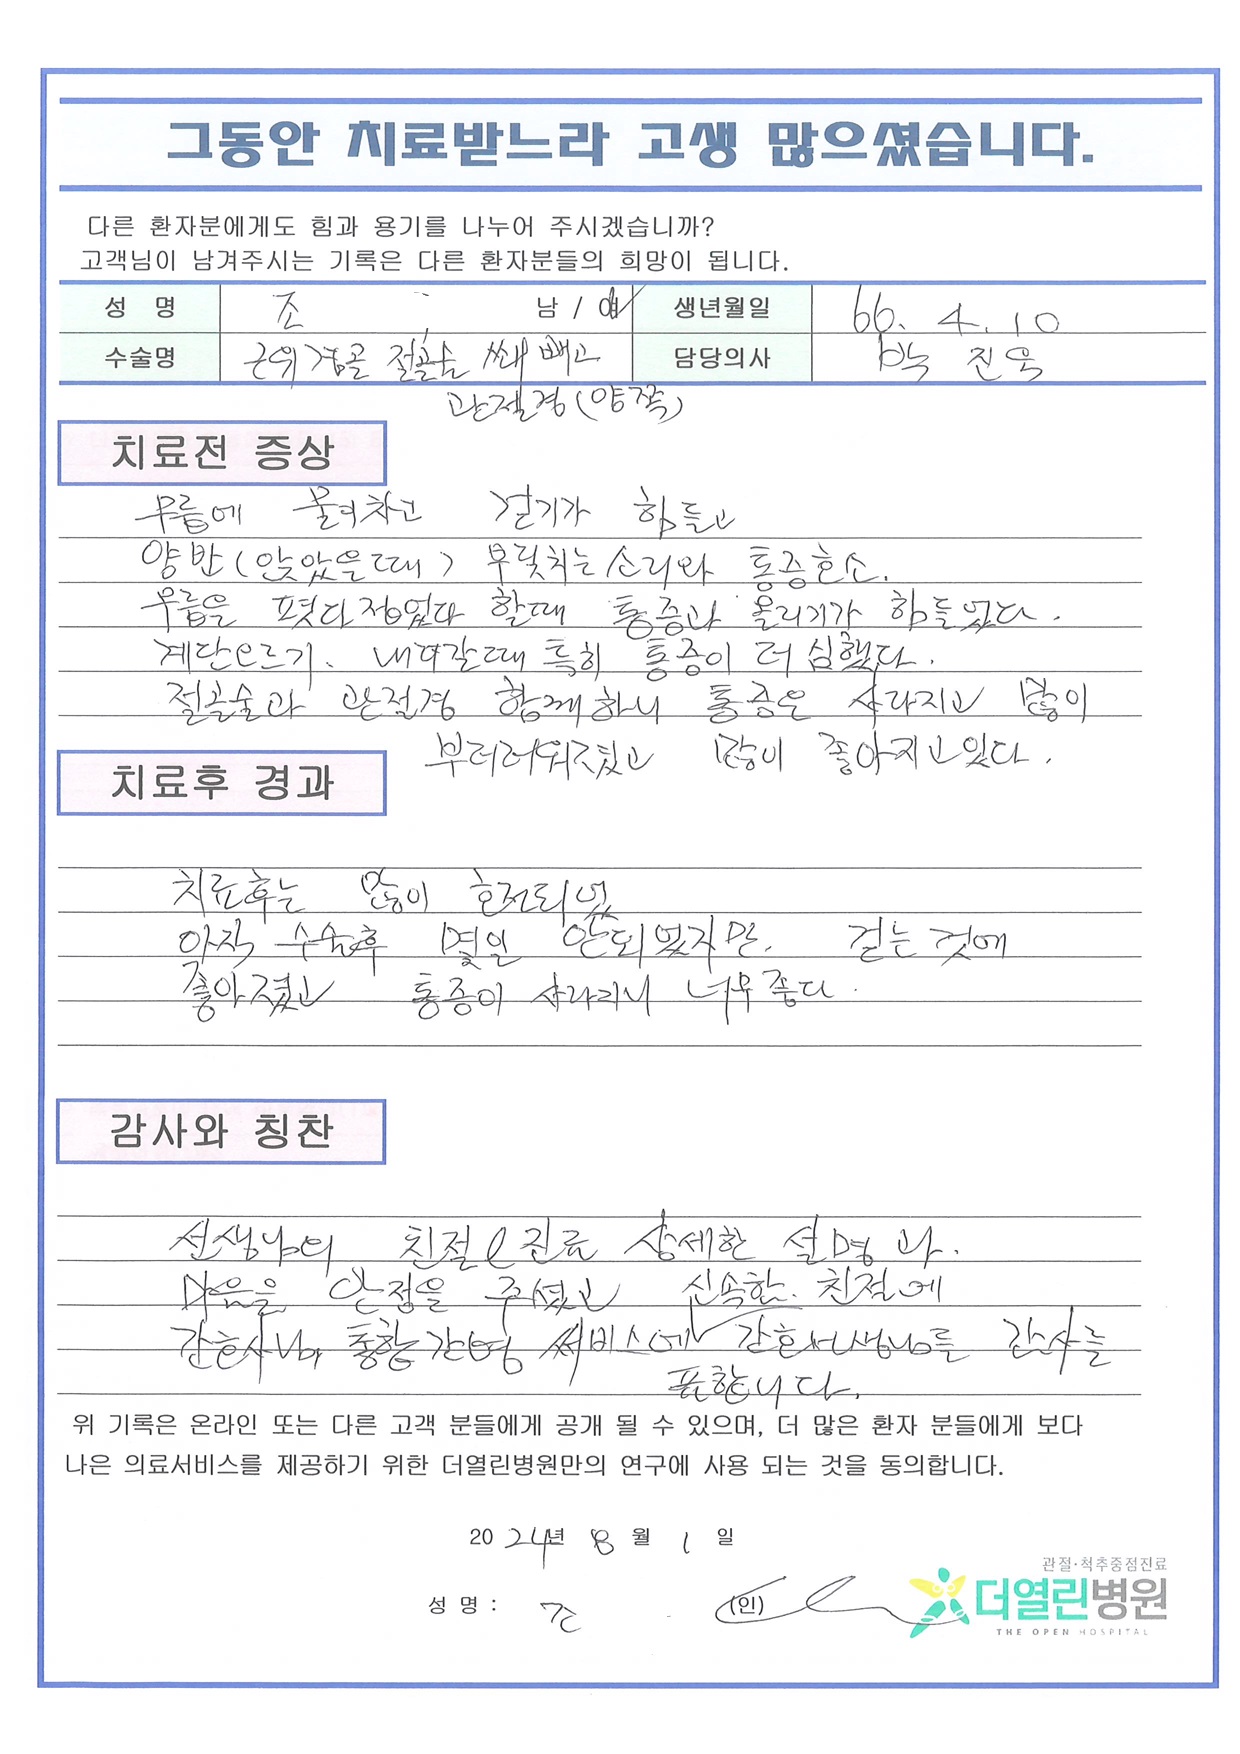 그동안 치료받느라 고생 많으셨습니다.
다른 환자분에게도 힘과 용기를 나누어 주시겠습니까?
고객님이 남겨주시는 기록은 다른 환자분들의 희망이 됩니다.
성 명 조 남 / 여 생년월일 66. 4. 10
수술명 근위경골 절골술 쐐 빼고 담당의사 박진욱
관절경(양쪽)
치료전 증상
무릎에 물이차고 걷기가 힘들고
양반(앉았을때) 부딪치는 소리와 통증호소.
무릎을 폈다 접었다 할때 통증과 올리기가 힘들었다.
계단오르기. 내려갈때 특히 통증이 더 심했다.
절골술과 관절경 함께하니 통증은 사라지고 많이
부러러워졌고 많이 좋아지고있다.
치료후 경과
치료후는 많이 호전되었
아직 수술후 몇일 안되었지만. 걷는것에
좋아졌고 통증이 사라지니 너무좋다.
감사와 칭찬
선생님의 친절 진료 상세한 설명과.
마음을 안정을 주셨고 신속한. 친절에
간호사님 통합간병 써비스에 간호선생님를 감사를
표합니다.
위 기록은 온라인 또는 다른 고객 분들에게 공개 될 수 있으며, 더 많은 환자 분들에게 보다
나은 의료서비스를 제공하기 위한 더열린병원만의 연구에 사용 되는 것을 동의합니다.
2024년 8월 1일
성 명 : 조 (인)
관절·척추중점진료
더열린병원
THE OPEN HOSPITAL